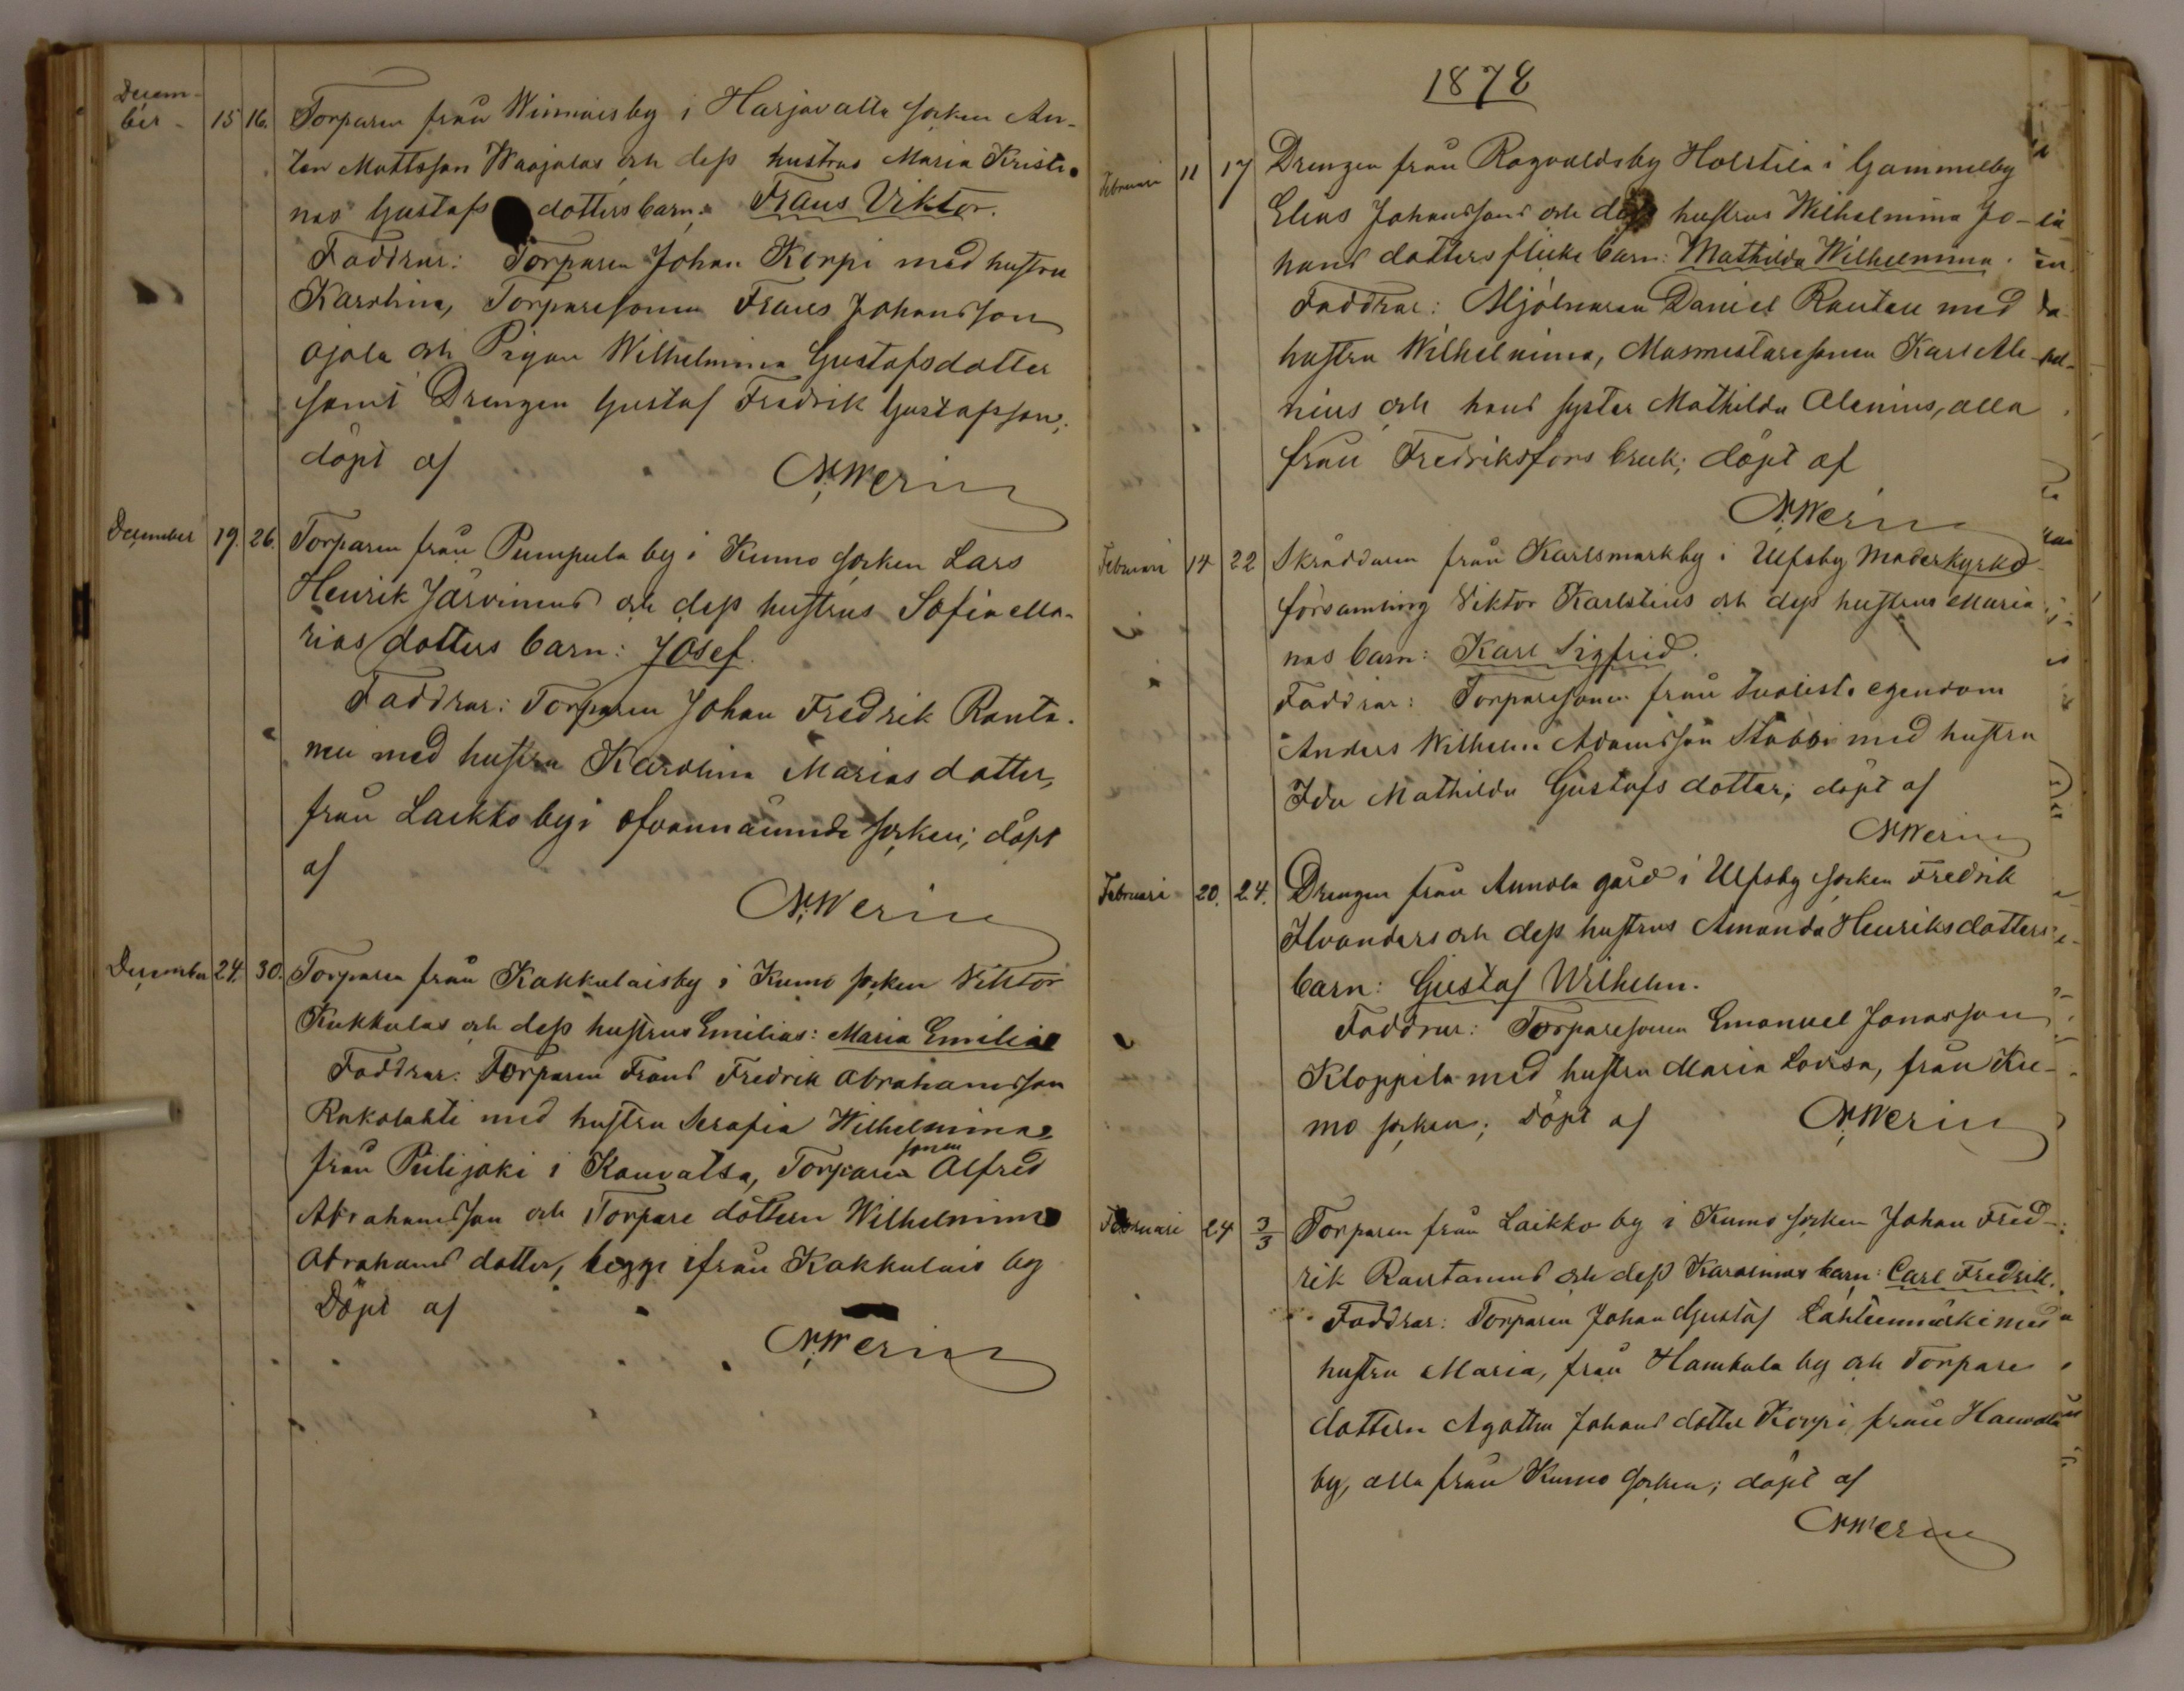 Decem-
ber 15 16. Torparen från Winnais by i Harjavalta socken An-
ton Mattsson Waajalas och dess hustrus Maria Kristi-
nas Gustafs dotters barn: Frans Viktor.
Faddrar: Torparen Johan Korpi med hustru
Karolina, Torparesonen Frans Johansson
Ojala och Pigan Wilhelmina Gustafsdotter
samt Drengen Gustaf Fredrik Gustafsson;
döpt af
N. Werin
December 19. 26. Torparen från Pumpula by i Kumo socken Lars
Henrik Järvinens och dess hustrus Sofia Ma-
rias dotters barn: Josef.
Faddrar: Torparen Johan Fredrik Ranta-
nen med hustru Karolina Marias dotter,
från Laikko by i ofvannämnde socken; döpt
af
N. Werin
December 24. 30. Torparen från Kakkulais by i Kumo socken Viktor
Kukkulas och dess hustrus Emilias: Maria Emilia
Faddrar: Torparen Frans Fredrik Abrahamsson
Rukolahti med hustru Serafia Wilhelmina
från Peilijoki i Kauvatsa, Torpare sonen Alfred
Abrahamsson och Torpare dottern Wilhelmina
Abrahams dotter, begge ifrån Kakkulais by
Döpt af
N. Werin
1878
Februari 11 17 Drengen från Ragvaldsby Holstila i Gammelby
Elias Johanssons och dess hustrus Wilhelmina Jo-
hans dotters flicke barn: Mathilda Wilhelmina.
Faddrar: Mjölnaren Daniel Rautell med
hustru Wilhelmina, Masmestaresonen Karl Ale-
nius och hans syster Mathilda Alenius, alla
från Fredriksfors bruk; döpt af
N. Werin
Februari 14 22 Skräddaren från Karlsmark by i Ulfsby Moderkyrko
församling Viktor Karlstens och dess hustrus Maria
nas barn: Karl Sigfrid.
Faddrar: Torparesonen från egendom
Anders Wilhelm Adamsson Stabbi med hustru
Ida Mathilda Gustafs dotter; döpt af
N. Werin
Februari 20. 24. Drengen från Annola gård i Ulfsby socken Fredrik
Ilvanders och dess hustrus Amanda Henriksdotters
barn: Gustaf Wilhelm.
Faddrar: Torparesonen Emanuel Jonasson
Kloppila med hustru Maria Lovisa, från Ku-
mo socken; Döpt af N. Werin
Februari 24 3/3 Torparen från Laikko by i Kumo socken Johan Fred-
rik Rantanens och dess Karolinas barn: Carl Fredrik.
Faddrar: Torparen Johan Gustaf Lähteenmäki med
hustru Maria, från Hamkula by och Torpare
dottern Agatha Johans dotter Korpi från
by, alla från Kumo socken; döpt af
N. Werin